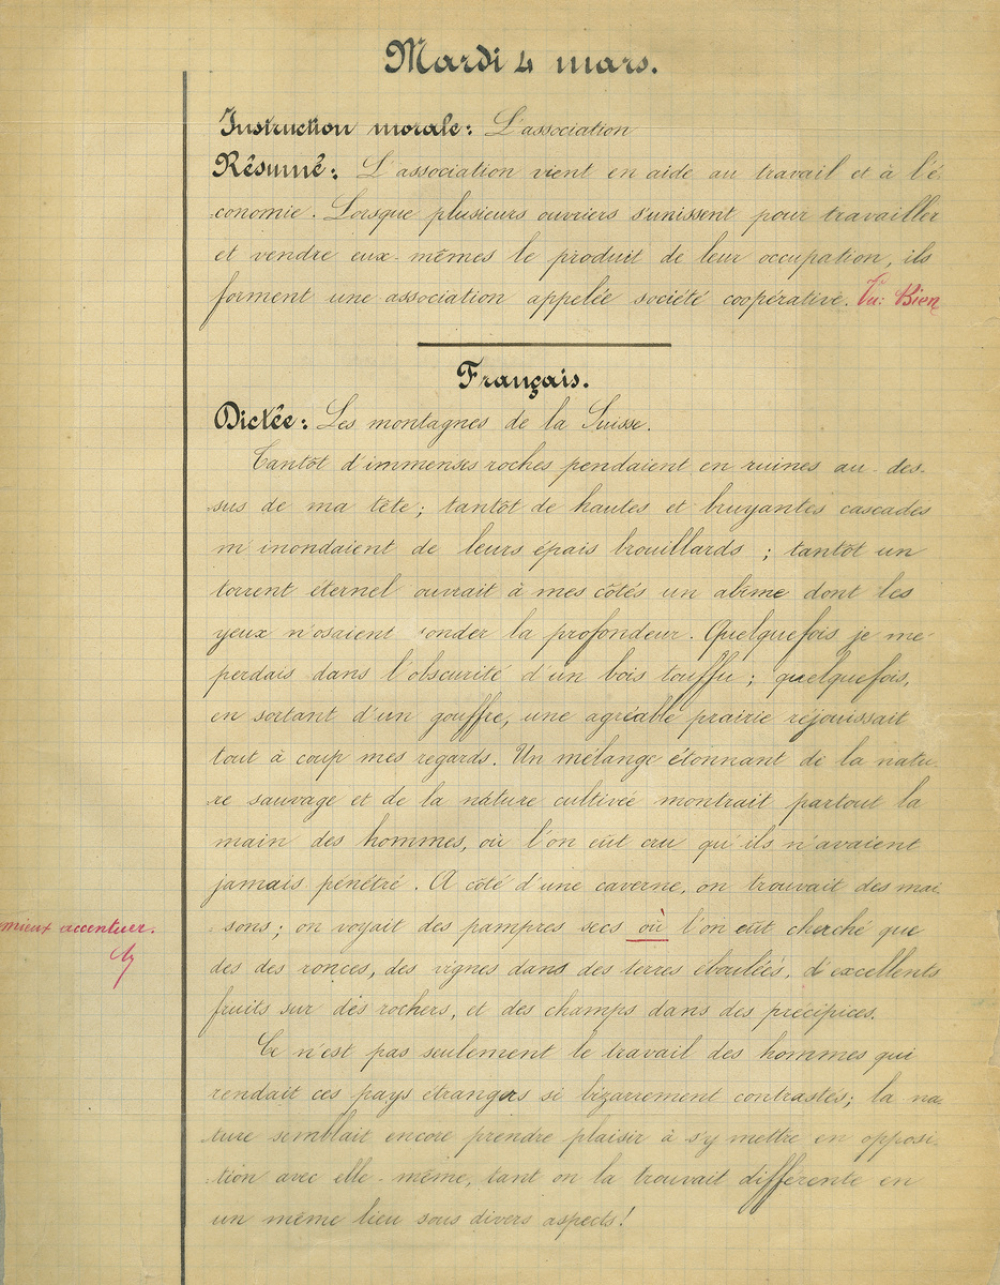 Mardi 4 mars.
Instruction morale: L'association
Résumé: L'association vient en aide au travail et à l'é-
conomie. Lorsque plusieurs ouvriers s'unissent pour travailler
et vendre eux-mêmes le produit de leur occupation, ils
forment une association appelée société coopérative. Vu: Bien
Français.
Dictée: Les montagnes de la Suisse.
Tantôt d'immenses roches pendaient en ruines au-des-
sus de ma tête; tantôt de hautes et bruyantes cascades
m'inondaient de leurs épais brouillards; tantôt un
torrent éternel ouvrait à mes côtés un abîme dont les
yeux n'osaient sonder la profondeur. Quelquefois je me
perdais dans l'obscurité d'un bois touffu; quelquefois,
en sortant d'un gouffre, une agréable prairie réjouissait
tout à coup mes regards. Un mélange étonnant de la natu-
re sauvage et de la nature cultivée montrait partout la
main des hommes, où l'on eût cru qu'ils n'avaient
jamais pénétré. A côté d'une caverne, on trouvait des mai-
sons; on voyait des pampres secs où l'on eût cherché que
mieux accentuer.
des des ronces, des vignes dans des terres éboulées, d'excellents
fruits sur des rochers, et des champs dans des précipices.
Ce n'est pas seulement le travail des hommes qui
rendait ces pays étrangers si bizarrement contrastés; la na-
ture semblait encore prendre plaisir à s'y mettre en opposi-
tion avec elle-même, tant on la trouvait différente en
un même lieu sous divers aspects!